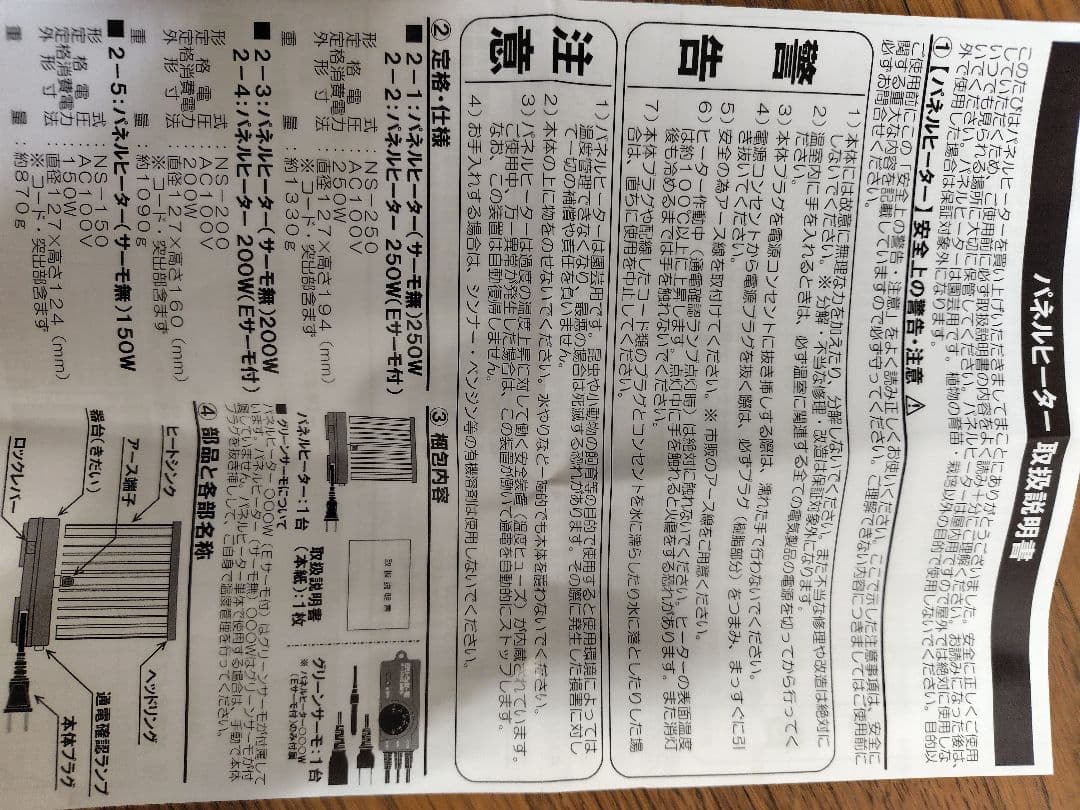 パネルヒーター 取扱説明書
このたびはパネルヒーターを買い上げいただきましてまことにありがとうございました。安全に正しくご使用
していただくため、ご使用前に必ず取扱説明書の内容をよく読み十分にご理解ください。お読みになった後は、
いつでも見られる場所に大切に保管してください。パネルヒーターは室内用ですので屋外では絶対に使用しな
いでください。パネルヒーターは園芸用です。植物の育苗・栽培以外の目的で使用しないでください。目的以
外で使用した場合は保証対象外になります。
① 【パネルヒーター】安全上の警告・注意 ⚠
ご使用前にこの「安全上の警告・注意」をよく読み正しくお使いください。ここで示した注意事項は、安全に
関する重大な内容を記載していますので必ず守ってください。ご理解できない内容につきましてはご使用前に
必ずお問合せください。
警告
1）本体には故意に無理な力を加えたり、分解しないでください。また不当な修理や改造は絶対に
しないでください。※分解・不当な修理・改造は保証対象外になります。
2）温室内に手を入れるときは、必ず温室に関連する全ての電気製品の電源を切ってから行ってく
ださい。
3）本体プラグを電源コンセントに抜き挿しする際は、濡れた手で行わないでください。
4）電源コンセントから電源プラグを抜く際は、必ずプラグ（樹脂部分）をつまみ、まっすぐに引
き抜いてください。
5）安全の為アース線を取付けてください。※市販のアース線をご用意ください。
6）ヒーター作動中（通電確認ランプ点灯時）は絶対に触れないでください。ヒーターの表面温度
は約100℃以上に上昇します。点灯中に手を触れると火傷をする恐れがあります。また消灯
後も冷めるまでは手を触れないでください。
7）本体プラグや配線したコード類のプラグとコンセントを水に濡らしたり水に落としたりした場
合は、直ちに使用を中止してください。
注意
1）パネルヒーターは園芸用です。昆虫や小動物の飼育等の目的で使用すると使用環境によっては
温度管理できなくなり、最悪の場合は死滅する恐れがあります。その際に発生した損害に対し
て一切の補償や責任を負いません。
2）本体の上に物をのせないでください。水やりなど一時的でも本体を覆わないでください。
3）パネルヒーターは過度の温度上昇に対して働く安全装置（温度ヒューズ）が内蔵されています。
ご使用中、万一異常が発生した場合は、この装置が働いて通電を自動的にストップします。
なお、この装置は自動復帰しません。
4）お手入れする場合は、シンナー・ベンジン等の有機溶剤は使用しないでください。
② 定格・仕様
■ 2−1：パネルヒーター(サーモ無)250W
2−2：パネルヒーター 250W(Eサーモ付)
形式：NS−250
定格電圧：AC100V
定格消費電力：250W
外形寸法：直径127×高さ194（mm）
※コード・突出部含まず
重量：約1330g
■ 2−3：パネルヒーター(サーモ無)200W
2−4：パネルヒーター 200W(Eサーモ付)
形式：NS−200
定格電圧：AC100V
定格消費電力：200W
外形寸法：直径127×高さ160（mm）
※コード・突出部含まず
重量：約1090g
■ 2−5：パネルヒーター(サーモ無)150W
形式：NS−150
定格電圧：AC100V
定格消費電力：150W
外形寸法：直径127×高さ124（mm）
※コード・突出部含まず
重量：約870g
③ 梱包内容
パネルヒーター：1台
取扱説明書
取扱説明書
（本紙）：1枚
グリーンサーモ：1台
※パネルヒーター〇〇〇W
(Eサーモ付)のみ付属
■ グリーンサーモについて
パネルヒーター〇〇〇W（Eサーモ付）はグリーンサーモが付属して
います。パネルヒーター（サーモ無）〇〇〇Wはグリーンサーモが付
属していません。パネルヒーター単体で使用する場合は、手動で本体
プラグを抜き挿しして、ご自身で温度管理を行ってください。
④ 部品と各部名称
ヒートシンク
アース端子
器台(きだい)
ロックレバー
ヘッドリング
通電確認ランプ
本体プラグ